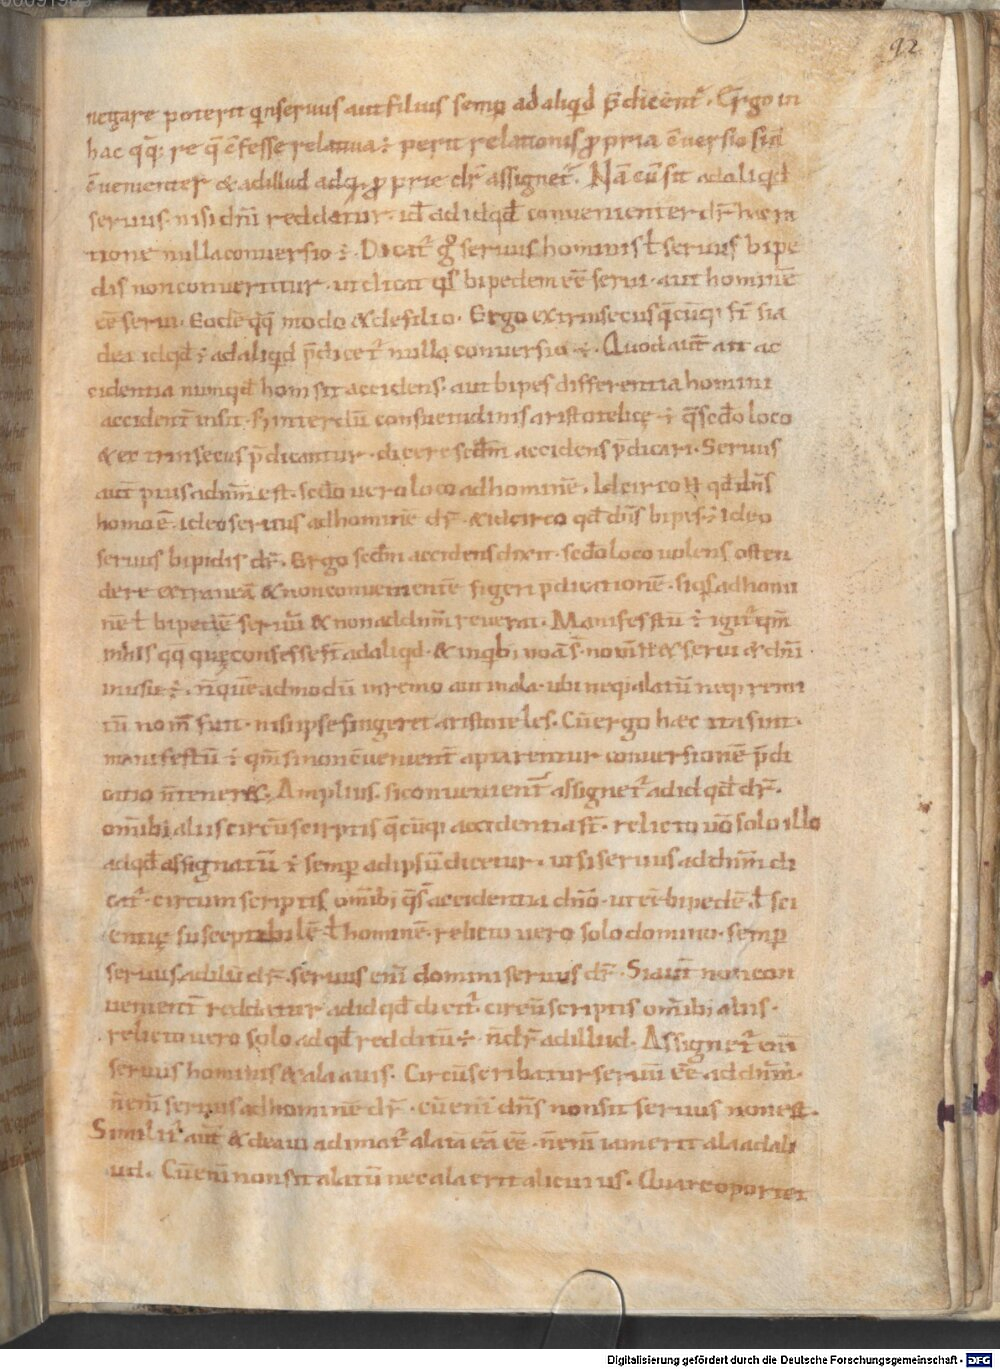 92
negare poterit qͥn seruus aut filius semp ad aliqd p̄dicent᷑. Ergo in
hac qq; re q̄ c̄fesse relatiua ÷ perit relationis propria c̄uersio si n̄
c̄uenienter & ad illud ad qd proprie dr̄ assignet᷑. Nā cū sit ad aliqd
seruus nisi dn̄i reddatur. id ad id qd conuenienter dr̄ hac ra
tione nulla conuersio ÷. Dicat᷑ g° seruus hominis ł seruus bipe
dis non conuertitur. ut dicat qs bipedem eē serui. aut hominē
eē serui. Eodē qq modo & de filio. Ergo extrinsecus q̄cūq; st̄ si a
dei id qd ÷ ad aliqd p̄dicet᷑ nulla conuersio ÷. Quod aut̄ ait ac
cidentia numqd hom sit accidens. aut bipes differentia homini
accident̄ insit. s; interdū consuetudinis aristotelicę ÷ q̄ scd̄o loco
& extrinsecus p̄dicantur. dicere scd̄m accidens p̄dicari. Seruus
aut̄ prius ad dn̄m est. scd̄o uero loco ad hominē. Idcirco n̄ qd dn̄s
homo ē. ideo seruus ad hominē dr̄. & idcirco qd dn̄s bipes ÷ ideo
seruus bipidis dr̄. Ergo scd̄m accidens dixit. scd̄o loco uolens osten
dere extraneā & non conuenientē figeri p̄dicationē. si qs ad homi
nē ł bipedē seruū & non ad dn̄m reuerat. Manifestū ÷ igit᷑ qm̄
in his qq quę confesse st̄ ad aliqd. & in qb; noā s̄. nom̄ &s serui & dn̄i
in usu ÷. n̄ quēadmodū in remo aut in ala. ubi neq; alatū neq; remi
tū nom̄ fuit. nisi ipse fingeret aristoteles. Cū ergo hæc ita sint.
manifestū ÷ qm̄ si non c̄uenient̄ aptarentur conuersionē p̄di
catio n̄ teneret. Amplius. si conuenient̄ assignet᷑ ad id qd dr̄.
om̄ib; aliis circū scriptis q̄cūq; accidentia st̄. relicto uō solo illo
ad qd assignatū ÷ semp ad ipsū dicetur. ut si seruus ad dn̄m di
cat᷑. circumscriptis om̄ib; qs̄ accidentia dn̄o. ut eē bipedē ł sci
entię susceptibilē ł hominē. relicto uero solo domino. semp
seruus ad illū dr̄. seruus enī domini seruus dr̄. Si aut̄ non con
uenient̄ reddatur ad id qd dicit᷑. circū scriptis om̄ib; aliis.
relicto uero solo ad qd redditū ÷ n̄ dr̄ ad illud. Assignet᷑ enī
seruus hominis & ala auis. Circū scribatur seruū eē ad dn̄m.
n̄ enī seruus ad hominē dr̄. cū enī dn̄s non sit seruus non est.
Similit᷑ aut̄ & de aui adimat᷑ alatā eā eē. n̄ enī iam erit ala ad ali
ud. Cū enī non sit alatū nec ala erit alicuius. Quare oportet
Digitalisierung gefördert durch die Deutsche Forschungsgemeinschaft - DFG